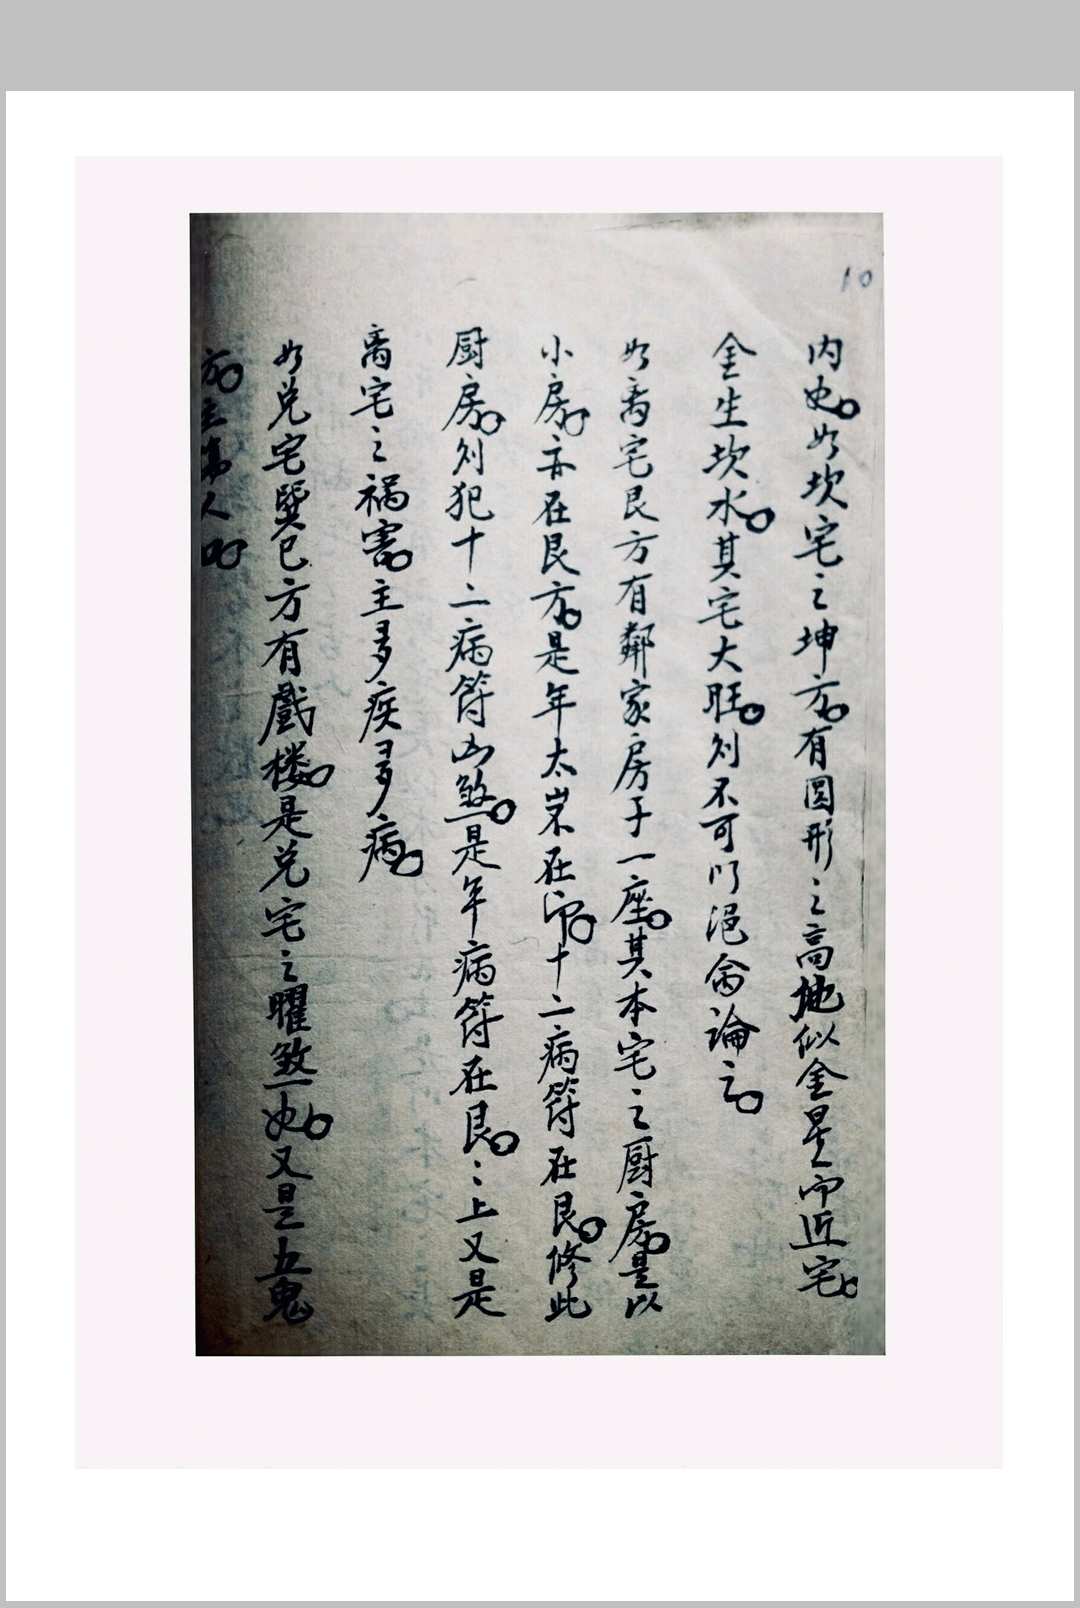 10
内也。如坎宅之坤方。有圆形之高地似金星而近宅。
金生坎水。其宅大旺。则不可以绝命論之。
如离宅艮方有鄰家房子一座。其本宅之厨房。是以
小房。亦在艮方。是年太岁在卯。十二病符在艮。修此
厨房。则犯十二病符凶煞。是年病符在艮。艮上又是
离宅之祸害。主多疾多病。
如兑宅巽巳方有戲楼。是兑宅之曜煞也。又是五鬼
方。主
人口。